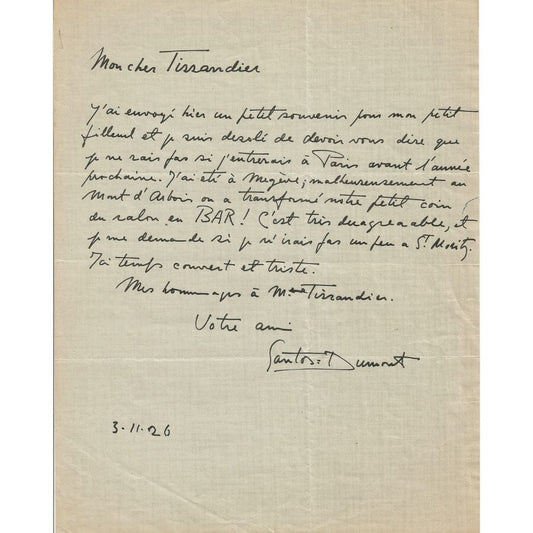 Mon cher Tissandier
J'ai envoyé hier un petit souvenir pour mon petit
filleul et je suis desolé de devoir vous dire que
je ne sais pas si j'entrerais à Paris avant l'année
prochaine. J'ai été à Megève; malheureusement au
Mont d'Arbois on a transformé notre petit coin
du salon en BAR! C'est tres desagreable, et
je me demande si je n'irais pas un peu a St Moritz.
Ici temps couvert et triste.
Mes hommages à Mme Tissandier.
Votre ami
Santos=Dumont
3.11.26